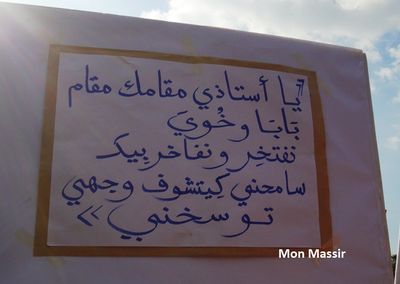 "يا أستاذي مقامك مقام
بَابَا وخُويَ
نفتخِر ونفاخر بِيك
سامحني كِيتشوف وجهي
توسخني »
Mon Massir